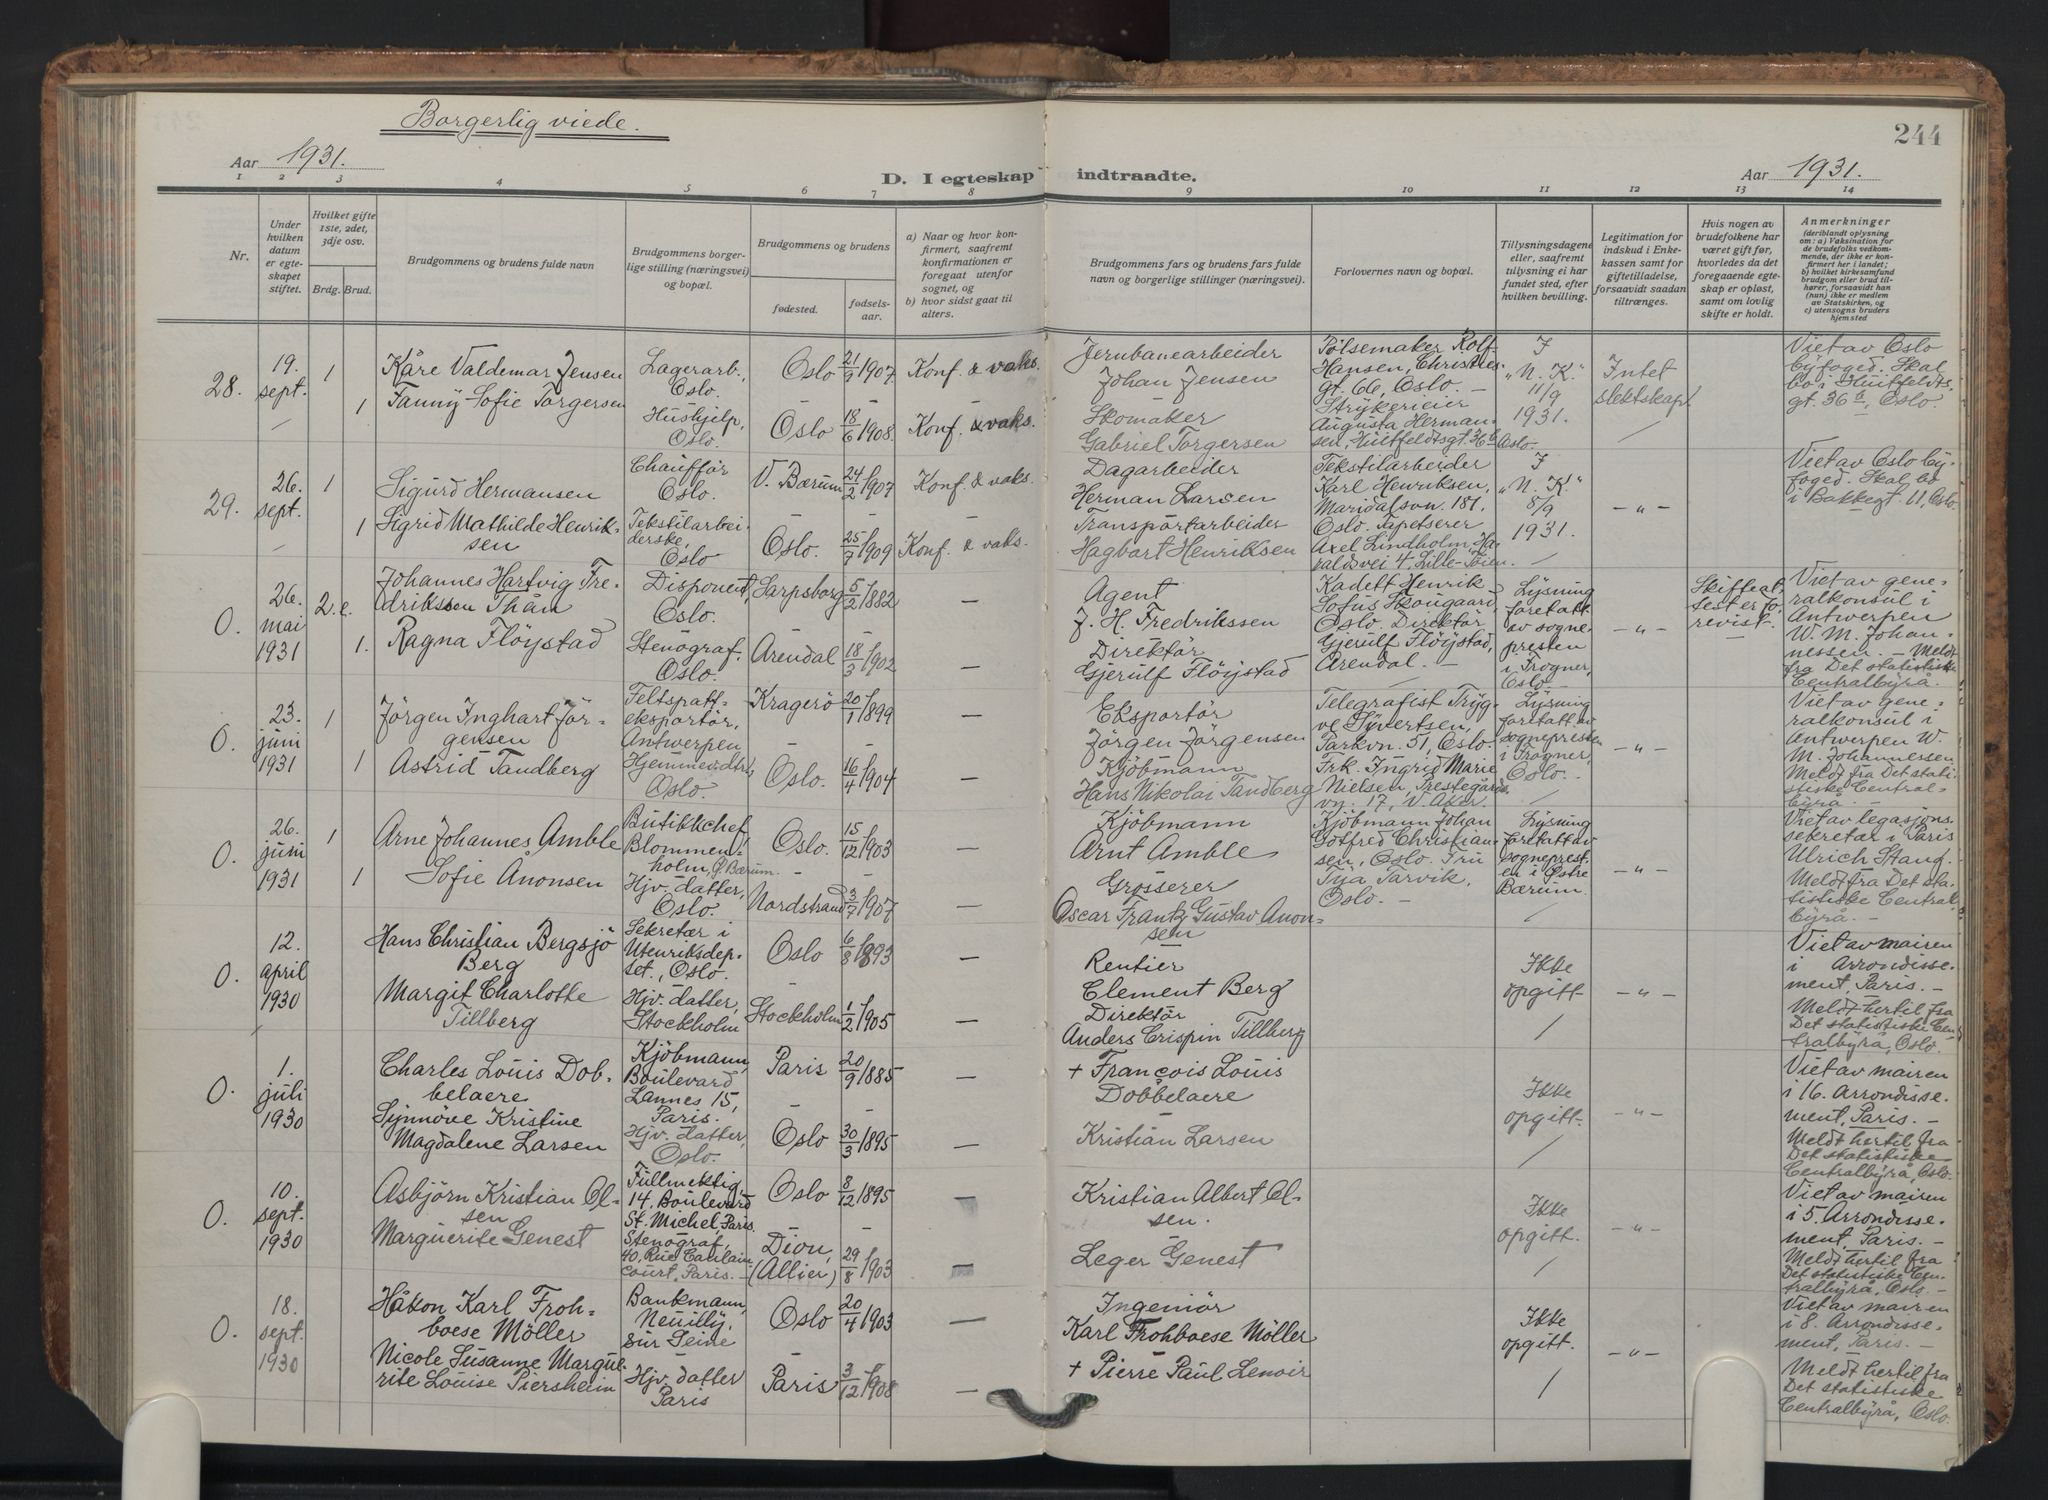 Borgerlig viede.
244
Aar 1931.
D. I egteskap indtraadte.
Aar 1931.
1 2 3 4 5 6 7 8 9 10 11 12 13 14
Nr.
Under hvilken datum er egteskapet stiftet.
Hvilket gifte 1ste, 2det, 3dje osv.
Brdg. Brud.
Brudgommens og brudens fulde navn
Brudgommens borgerlige stilling (næringsvei) og bopæl.
Brudgommens og brudens
fødested.
fødselsaar.
a) Naar og hvor konfirmert, saafremt konfirmationen er foregaat utenfor sognet, og
b) hvor sidst gaat til alters.
Brudgommens fars og brudens fars fulde navn og borgerlige stillinger (næringsvei).
Forlovernes navn og bopæl.
Tillysningsdagene eller, saafremt tillysning ei har fundet sted, efter hvilken bevilling.
Legitimation for indskud i Enkekassen samt for giftetilladelse, forsaavidt saadan tiltrænges.
Hvis nogen av brudefolkene har været gift før, hvorledes da det foregaaende egteskap er opløst, samt om lovlig skifte er holdt.
Anmerkninger
(deriblandt oplysning om: a) Vaksination for de brudefolks vedkommende, der ikke er konfirmert her i landet;
b) hvilket kirkesamfund brudgom eller brud tilhører, forsaavidt han (hun) ikke er medlem av Statskirken, og
c) utensogns bruders hjemsted
28.
19.
sept.
1
1
Kåre Valdemar Jensen
Fanny Sofie Torgersen
Lagerarb.,
Oslo.
Hushjelp,
Oslo.
Oslo 21/9 1907
Oslo 18/6 1908.
Konf. & vaks.
Konf. & vaks.
Jernbanearbeider
Johan Jensen
Skomaker
Gabriel Torgersen
Pølsemaker Rolf
Hansen, Christies
gt. 66, Oslo. –
Strykerieier
Augusta Herman-
sen, Huitfeldtsgt. Oslo.
"N. K."
11/9
1931.
Intet
slektskap
Viet av Oslo
byfoged. Skal
bo i Huitfeldts
gt. 36 b, Oslo.
29.
26.
sept.
1
1
Sigurd Hermansen
Sigrid Mathilde Henrik-
sen
Chauffør
Oslo.
Tekstilarbei-
derske,
Oslo
V. Bærum 24/2 1907
Oslo. 25/7 1909
Konf. & vaks.
Konf. & vaks.
Dagarbeider
Herman Larsen
Transportarbeider
Hagbart Henriksen
Tekstilarbeider
Karl Henriksen,
Maridalsvn. 181,
Oslo. Tapetserer
Axel Lindholm, Ha-
raldsvei 4, Lille-Tøien.
"N. K."
8/9
1931.
– " –
Viet av Oslo by-
foged. Skal bo
i Bakkegt. 11, Oslo.
0.
26.
mai
1931
2.
1.
Johannes Hartvig Fre-
drikssen Thån
Ragna Fløystad
Disponent,
Oslo.
Stenograf.
Oslo.
Sarpsborg 5/2 1882
Arendal 18/3 1902
Agent
J. H. Fredrikssen
Direktør
Gjerulf Fløystad
Kadett Henrik
Sofus Skougaard,
Oslo. Direktør
Gjerulf Fløystad,
Arendal. –
Lysning
foretatt
av sogne-
presten
i Frogner,
Oslo –
– " –
Skifteat-
test er fo-
revist.
Viet av gene-
ralkonsul i
Antwerpen
W. M. Johan-
nessen. – Meldt
fra Det statistiske
Centralbyrå.
0.
23.
juni
1931
1
1
Jørgen Inghart Jør-
gensen
Astrid Tandberg
Feltspatt-
eksportør,
Antwerpen
Hjemmev. dtr.
Oslo.
Kragerø 20/1 1899
Oslo. 16/4 1904
Eksportør
Jørgen Jørgensen
Kjøbmann
Hans Nikolai Tandberg
Telegrafist Tryg-
ve Syvertsen,
Parkvn. 51, Oslo.
Frk. Ingrid Marie
Nielsen, Prestegårds
vn. 17, V. Aker.
Lysning
foretatt av
sognepresten
i Frogner,
Oslo.
– " –
Viet av gene-
ralkonsul i
Antwerpen W.
M. Johannessen
Meldt fra Det stati-
stiske Central-
byrå. –
0.
26.
juni
1931
1
1
Arne Johannes Amble
Sofie Ånonsen
Butikkchef,
Blommen-
holm, Ø. Bærum.
Hjv. datter,
Oslo.
Oslo. 15/12 1903
Nordstrand 3/7 1907
Kjøbmann
Arnt Amble
Grosserer
Oscar Frantz Gustav Anon-
sen
Kjøbmann Johan
Gotfred Christian-
sen, Oslo. Fru
Tarvik,
Oslo. –
Lysning
foretatt av
sogneprest-
en i Østre
Bærum.
– " –
Viet av legasjons-
sekretær i Paris
Ulrich Stang.
Meldt fra Det sta-
tistiske Central-
byrå. –
0.
12.
april
1930
Hans Christian Bergsjø
Berg
Margit Charlotte
Tillberg
Sekretær i
Utenriksdep-
tet., Oslo.
Hjv. datter,
Stockholm
Oslo 6/8 1893
Stockholm 1/2 1905
Rentier
Clement Berg
Direktør
Anders Crispin Tillberg
Ikke
opgitt
– " –
Viet av mairen
i Arrondisse-
ment, Paris. –
Meldt hertil fra
Det statistiske Cen-
tralbyrå, Oslo.
0.
1.
juli
1930
Charles Louis Dob-
belaere
Synnøve Kristine
Magdalene Larsen
Kjøbmann,
Boulevard
Lannes 15,
Paris.
Hjv. datter,
Oslo.
Paris 20/9 1885
Oslo 30/3 1895
+ François Louis
Dobbelaere
Kristian Larsen
Ikke
opgitt.
– " –
Viet av mairen
i 16. Arrondisse-
ment, Paris. –
Meldt hertil fra
Det statistiske
Centralbyrå, Oslo.
0.
10.
sept.
1930
Asbjørn Kristian Ol-
sen
Marguerite Genest
Fullmektig,
14, Boulevard
St. Michel, Paris.
Stenograf,
40, Rue Caulain
court, Paris. –
Oslo 8/12 1895
Diou,
(Allier) 29/8 1903
Kristian Albert Ol-
sen.
Leger Genest
Ikke
opgitt.
– " –
Viet av mairen
i 5. Arrondisse-
ment, Paris. –
Meldt hertil fra
Det statistiske Cen-
tralbyrå, Oslo. –
0.
18.
sept.
1930
Håkon Karl Froh-
boese Møller
Nicole Susanne Margue-
rite Louise Piersheim
Bankmann,
Neuilly,
sur Seine
Hjv. datter
Paris
Oslo 20/4 1903
Paris 3/12 1908
Ingeniør
Karl Frohboese Møller
+ Pierre Paul Lenoir
Ikke
opgitt.
– " –
Viet av mairen
i 8. Arrondisse-
ment, Paris. –
Meldt hertil fra
Det statistiske
Centralbyrå, Oslo.